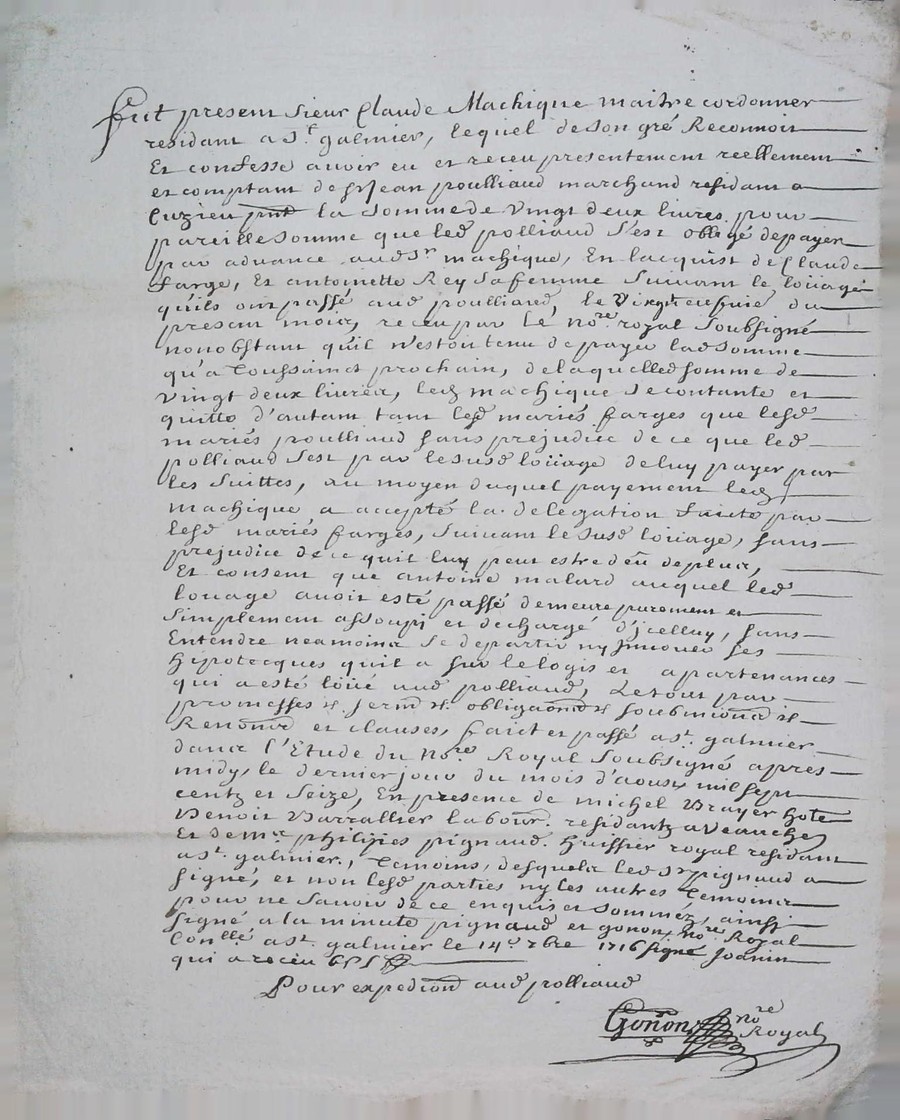 fut present sieur Claude Machique maitre cordonner
residant a St. galmier, lequel de son gré Reconnoit
Et confesse avoir eu et receu presentement reellement
et comptant de Jean poulliaud marchand residant a
Cuzieu la somme de vingt deux livres pour
pareille somme que led polliaud s'est obligé de payer
par advance aud Sr machique, En lacquist de Claude
farge, Et antoinette Rey sa femme suivant le loüage
qu'ils ont passé aud poulliaud, le du
present mois, receu par le nore royal soubsigné
nonobstant qu'il n'est ou tenu de payer lad somme
qu'a Toussainct prochain, de laquelle somme de
vingt deux livres, led machique se contante et
quitte d'autam tant lesd mariés farges que lesd
mariés poulliaud sans prejudice de ce que led
polliaud s'est par le susd loüage de luy payer par
les suittes, au moyen duquel payement led
machique a accepté la delegation faitte par
lesd mariés farges, suivant le susd loüage, sans
prejudice de ce quil luy peut estre dëu de plus,
Et consent que antoine malard auquel led
loüage avoit esté passé demeure purement et
simplement assoupi et dechargé d'jcelluy, sans
Entendre neamoins se departir ny jnnover ses
hipotecques quil a sur le logis et apartenances
qui a esté loüé aud polliaud, Le tout par
promesses & serm & obligaõns & soubmiõns &
Renonõn et clauses, faict et passé a St. galmier
dans l'Etude du nore Royal soubsigné apres
midy, le dernier jour du mois d'aoust mil sept
centz et seize, En presence de michel Brayer hote
Benoit Barrallier labour. residantz a Veauche
Et de mre philipes pignaud huissier royal residant
a St. galmier, Temoins, desquels led Sr pignaud a
signé, et non lesd parties ny les autres Temoins
pour ne savoir de ce enquis et sommez, ainsi
signé a la minute pignaud et gonon nore Royal
Conllé a St. galmier le 14e 7bre 1716 signé Joanin
qui a receu
Pour expediõn aud polliaud
Gonon nore
Royal